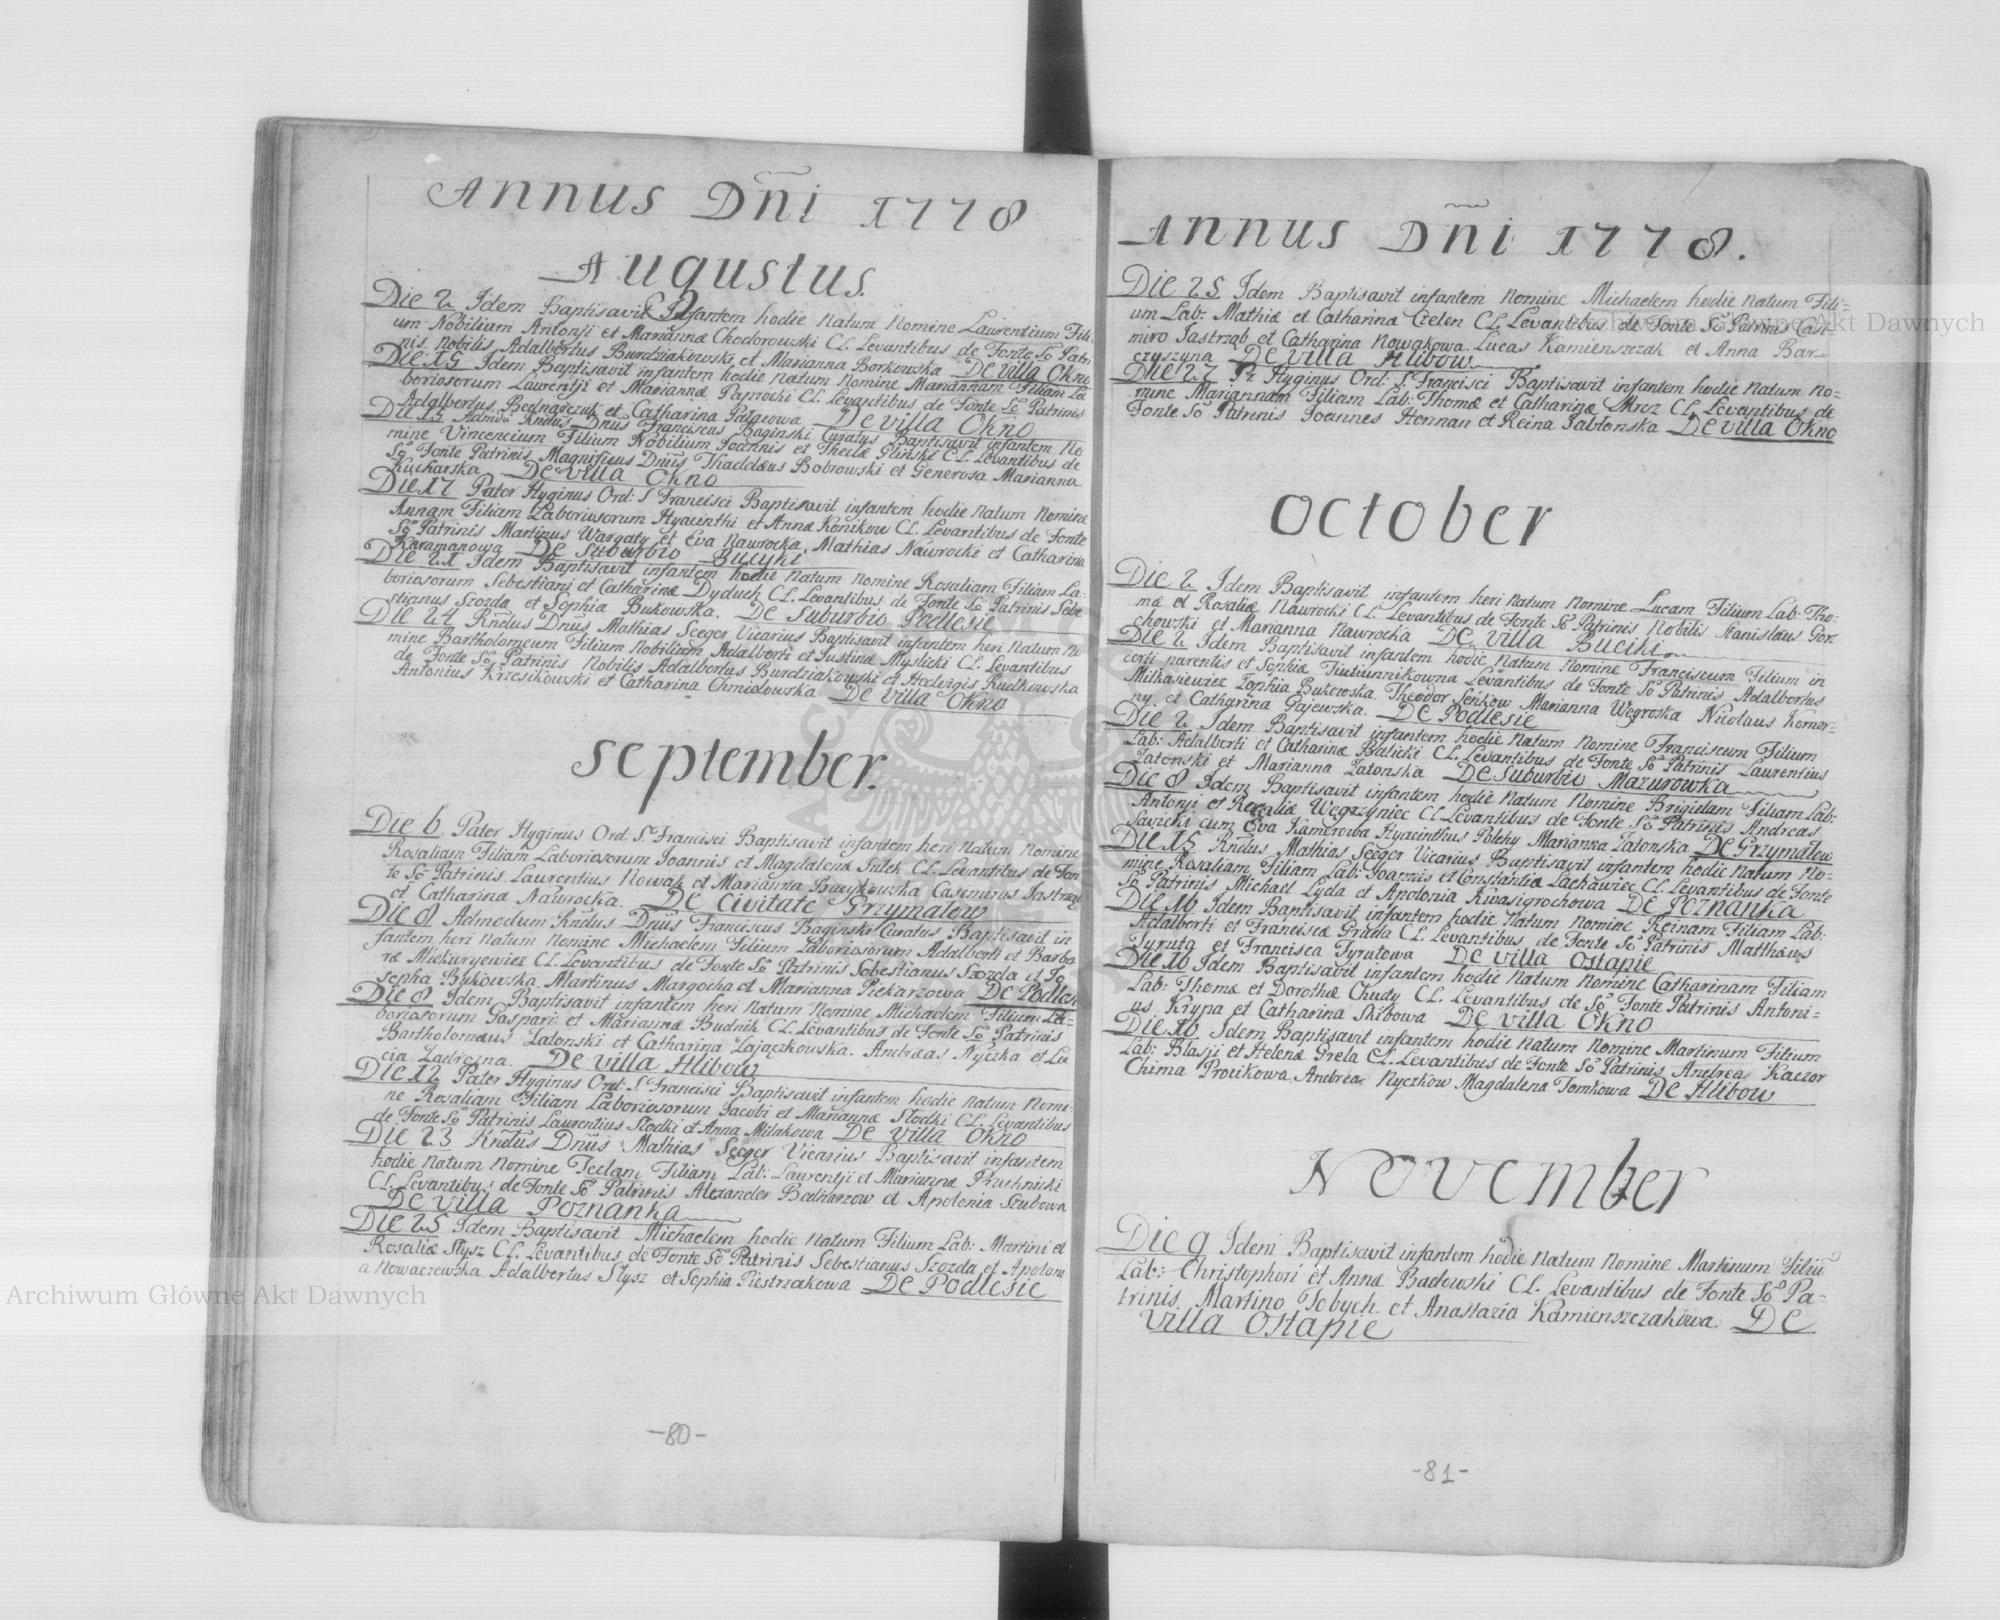 Annus Dñi 1778
Augustus.
Die 2 Idem Baptisavit Infantem hodie natum nomine Laurentium Fili-
um Nobilium Antonji et Mariannæ Chodorowski CL. Levantibus de Fonte So Patri-
nis. nobilis Adalbertus Burdziakowski et Marianna Borkowska De villa Okno
Die 15 Idem Baptisavit infantem hodie natum nomine Mariannam Filiam La-
boriosorum Laurentji et Mariannæ Paprocki CL. Levantibus de Fonte So Patrinis
Adalbertus Bednarczuk et Catharina De villa Okno
Die 15 Rndus Dnus Franciscus Baginski Curatus Baptisavit infantem No
mine Vincencium Filium Nobilium Joannis et Theclæ Glinski CL. Levantibus de
So Fonte Patrinis Magnificus Dnus Thaddæus Bobrowski et Generosa Marianna
Kucharska De villa Okno
Die 17 Pater Hyginus Ord: S Francisci Baptisavit infantem hodie natum nomine
Annam Filiam Laboriosorum Hyacinthi et Annæ Konikow CL. Levantibus de Fonte
So Patrinis Martinus Wargaty et Eva Nawrocka, Mathias Nawrocki et Catharina
Karamanowa De Suburbio Bucyki
Die 21 Idem Baptisavit infantem hodie natum nomine Rosaliam Filiam La-
boriosorum Sebestiani et Catharinæ Dyduch CL. Levantibus de Fonte So Patrinis Sebe
stianus Szozda et Sophia Bukowska. De Suburbio Podlesie
Die 24 Rndus Dnus Mathias Seeger Vicarius Baptisavit infantem heri natum no
mine Bartholomeum Filium Nobilium Adalberti et Justinæ Myslicki CL. Levantibus
de Fonte So Patrinis Nobilis Adalbertus Burdziakowski et Hedvigis Rudkowska
Antonius Krzesikowski et Catharina Chmielowska De villa Okno
September.
Die 6 Pater Hyginus Ord. S. Francisci Baptisavit infantem heri natum nomine
Rosaliam Filiam Laboriosorum Joannis et Magdalenæ Sulek CL. Levantibus de Fon
te So Patrinis Laurentius Nowak et Marianna Bucykowska Casimirus Jastrząb
et Catharina Nawrocka. De Civitate Grzymałow
Die 8 Admodum Rndus Dnus Franciscus Baginski Curatus Baptisavit in
fantem heri natum nomine Michaelem Filium Laboriosorum Adalberti et Barba
ræ Mickuryewicz CL. Levantibus de Fonte So Patrinis Sebestianus Szozda et Jo
sepha Bykowska. Martinus Margocha et Marianna Piekarzowa De Podlesie
Die 8 Idem Baptisavit infantem heri natum nomine Michaelem Filium La-
boriosorum Gaspari et Mariannæ Budnik CL. Levantibus de Fonte So Patrinis
Bartholomæus Zatonski et Catharina Zajączkowska. Andreas Nyczka et Lu
cia De villa Hlibow
Die 12 Pater Hyginus Ord: S. Francisci Baptisavit infantem hodie natum nomi-
ne Rosaliam Filiam Laboriosorum Jacobi et Mariannæ Słodki CL. Levantibus
de Fonte So Patrinis Laurentius Słodki et Anna Milakowa De villa Okno
Die 23 Rndus Dnus Mathias Seeger Vicarius Baptisavit infantem
hodie natum nomine Teclam Filiam Lab: Laurentji et Mariannæ Pruchnicki
CL. Levantibus de Fonte So Patrinis Alexander Bednarzow et Apolonia Szubowa
De villa Poznanka
Die 25 Idem Baptisavit Michaelem hodie natum Filium Lab: Martini et
Rosaliæ Słysz CL. Levantibus de Fonte So Patrinis Sebestianus Szozda et Apoloni
a Nowaczewska. Adalbertus Słysz et Sophia Piestrzakowa De Podlesie
-80-
Annus Dñi 1778.
Die 25 Idem Baptisavit infantem nomine Michaelem hodie natum Fili-
um Lab: Mathiæ et Catharinæ Czelen CL. Levantibus de Fonte So Patrinis Casi-
miro Jastrząb et Catharina Nowakowa. Lucas Kamienszczak et Anna Bar-
czyszyna De villa Hlibow
Die 27 Pr. Hyginus Ord: S. Francisci Baptisavit infantem hodie natum no-
mine Mariannam Filiam Lab: Thomæ et Catharinæ Mroz CL. Levantibus de
Fonte So Patrinis Joannes Herman et Reina Jabłonska De villa Okno
October
Die 2 Idem Baptisavit infantem heri natum nomine Lucam Filium Lab: Tho-
mæ et Rosaliæ Nawrocki CL. Levantibus de Fonte So Patrinis Nobilis Stanislaus Gor-
chowski et Marianna Nawrocka De villa Buciki
Die 2 Idem Baptisavit infantem hodie natum nomine Franciscum Filium in
certi parentis et Sophiæ Tiutiunnikowna Levantibus de Fonte So Patrinis Adalbertus
Mitkasiewicz Zophia Bukowska. Theodor Senkow Marianna Węgroska Nicolaus Komor-
ny. et Catharina Gajewska. De Podlesie
Die 2 Idem Baptisavit infantem hodie natum nomine Franciscum Filium
Lab: Adalberti et Catharinæ Balicki CL. Levantibus de Fonte So Patrinis Laurentius
Zatonski et Marianna Zatonska De Suburbio Mazurowka
Die 8 Idem Baptisavit infantem hodie natum nomine Brigidam Filiam Lab:
Antonji et Rozaliæ Węgrzyniec CL. Levantibus de Fonte So Patrinis Andreas
Sawicki cum Eva Kamerowa Hyacinthus Polehy Marianna Zatonska De Grzymalow
Die 15 Rndus Mathias Seeger Vicarius Baptisavit infantem hodie natum no-
mine Rosaliam Filiam Lab: Joannis et Constantiæ Lachawiec CL. Levantibus de Fonte
So Patrinis Michael Lyda et Apolonia Kwasigrochowa De Poznanka
Die 16 Idem Baptisavit infantem hodie natum nomine Reinam Filiam Lab:
Adalberti et Franciscæ Grada CL. Levantibus de Fonte So Patrinis Matthæus
Tyruta et Francisca Tyrutowa De villa Ostapie
Die 16 Idem Baptisavit infantem hodie natum nomine Catharinam Filiam
Lab: Thomæ et Dorothæ Chudy CL. Levantibus de So Fonte Patrinis Antoni-
us Krypa et Catharina Skibowa De villa Okno
Die 16 Idem Baptisavit infantem hodie natum nomine Martinum Filium
Lab: Blasji et Helenæ Grela CL. Levantibus de Fonte So Patrinis Andreas Kaczor
Chima Procikowa. Andreas Nyczkow Magdalena Tomkowa De Hlibow
November
Die 9 Idem Baptisavit infantem hodie natum nomine Martinum Filiu
Lab: Christophori et Annæ Badowski CL. Levantibus de Fonte So Pa-
trinis. Martino Tobych. et Anastazia Kamienszczakowa. De
villa Ostapie
-81-
Archiwum Główne Akt Dawnych
Archiwum Główne Akt Dawnych